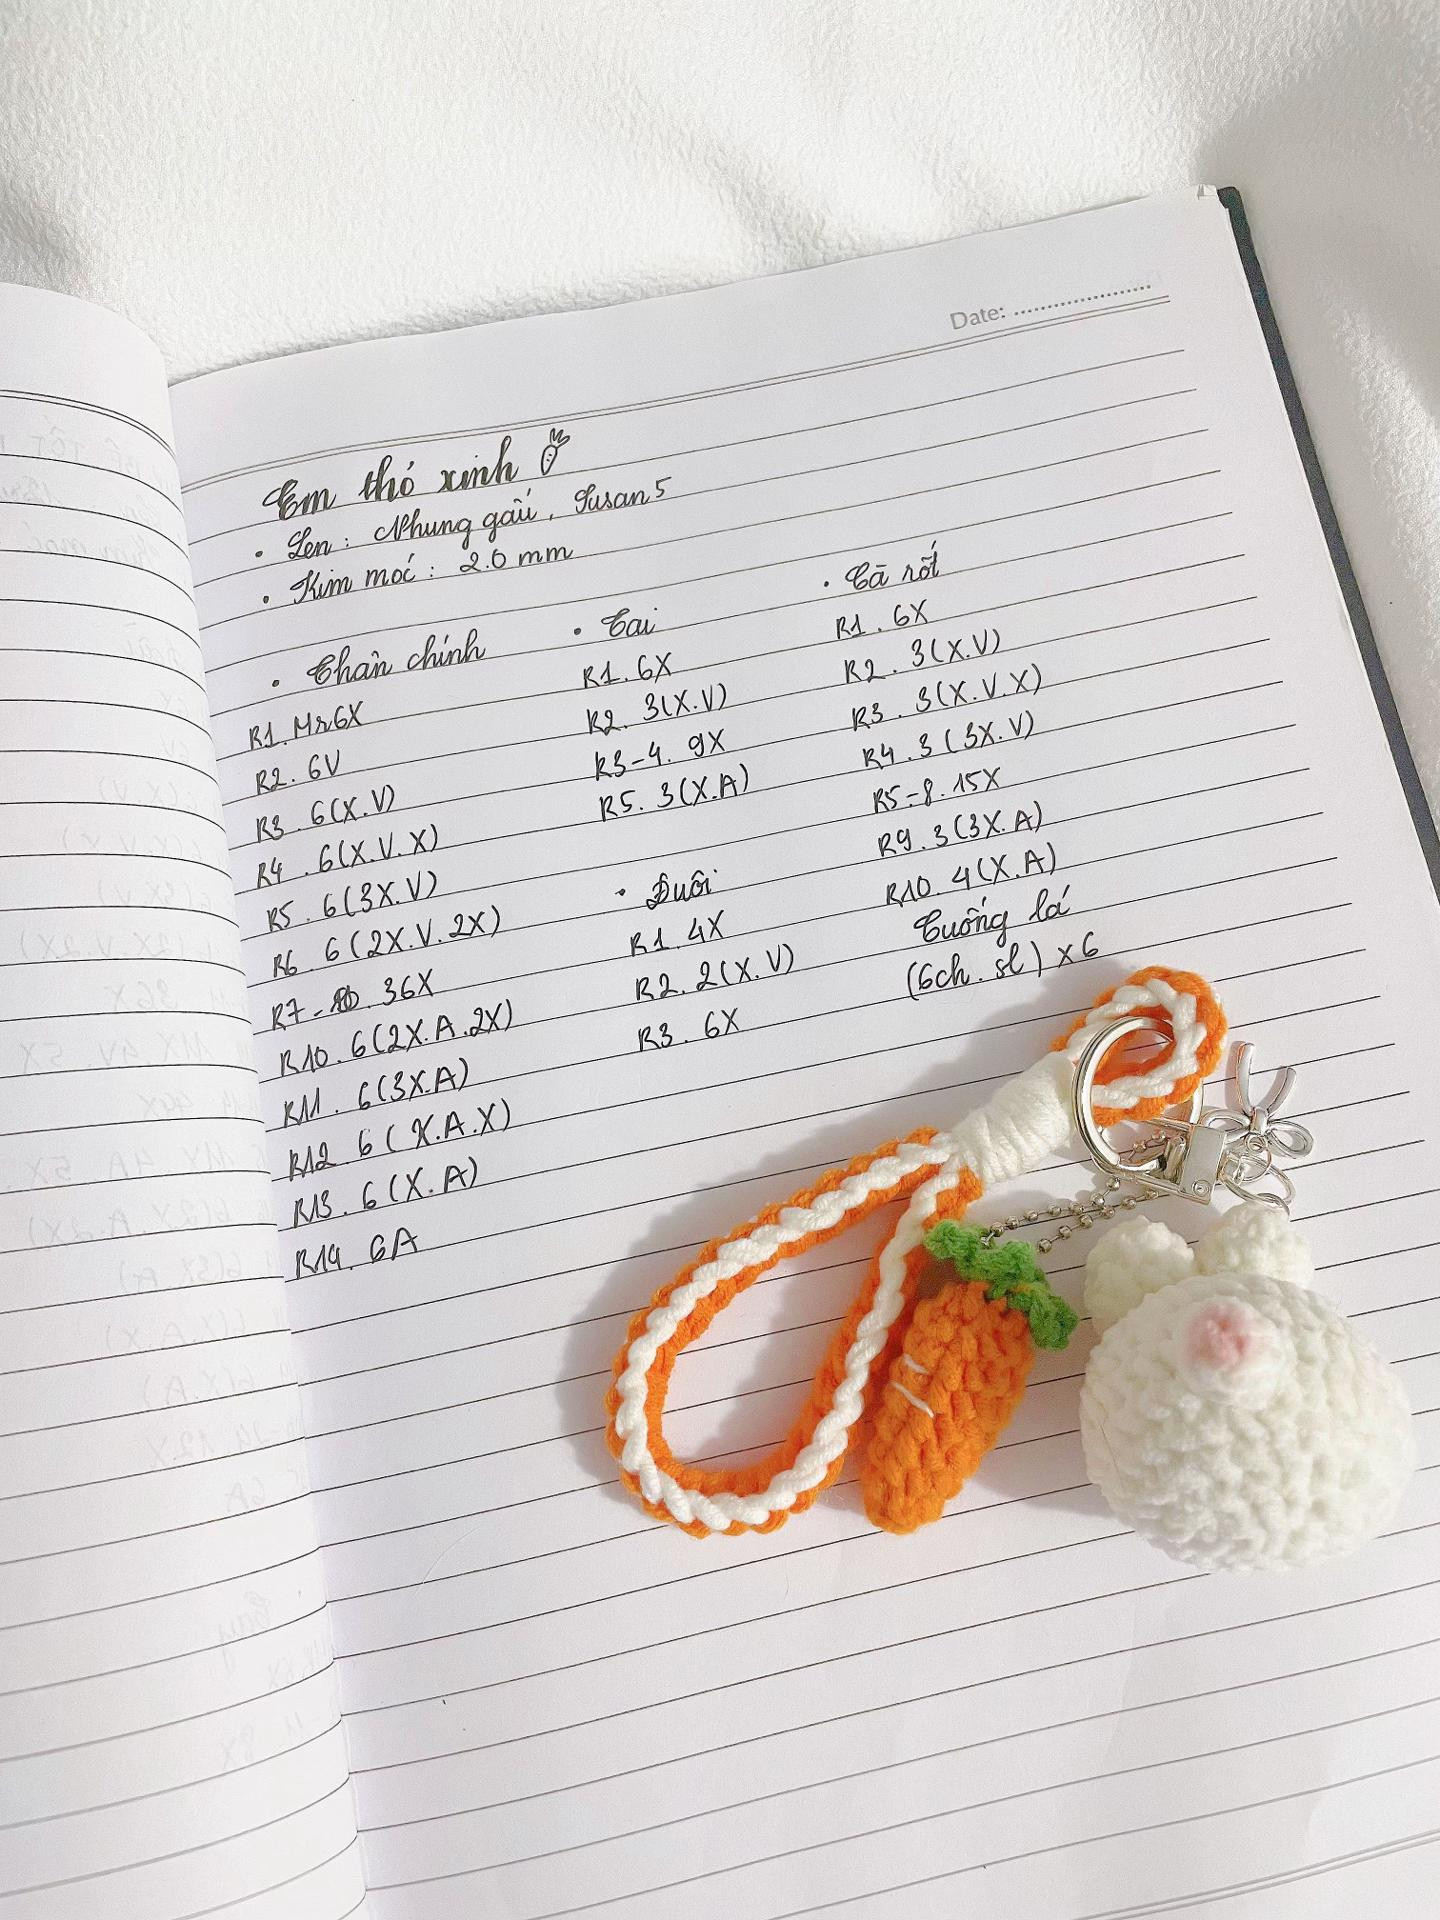 Date:
Em thỏ xinh
• Len: Nhung gấu, Susan 5
• Kim móc: 2.0 mm
• Thân chính
R1. Mr6X
R2. 6V
R3. 6(X.V)
R4. 6(X.V.X)
R5. 6(3X.V)
R6. 6(2X.V.2X)
R7- 36X
R10. 6(2X.A.2X)
R11. 6(3X.A)
R12. 6(X.A.X)
R13. 6(X.A)
R14. 6A
• Tai
R1. 6X
R2. 3(X.V)
R3-4. 9X
R5. 3(X.A)
• Đuôi
R1. 4X
R2. 2(X.V)
R3. 6X
• Cà rốt
R1. 6X
R2. 3(X.V)
R3. 3(X.V.X)
R4. 3(3X.V)
R5-8. 15X
R9. 3(3X.A)
R10. 4(X.A)
Cuống lá
(6ch. sl) x6